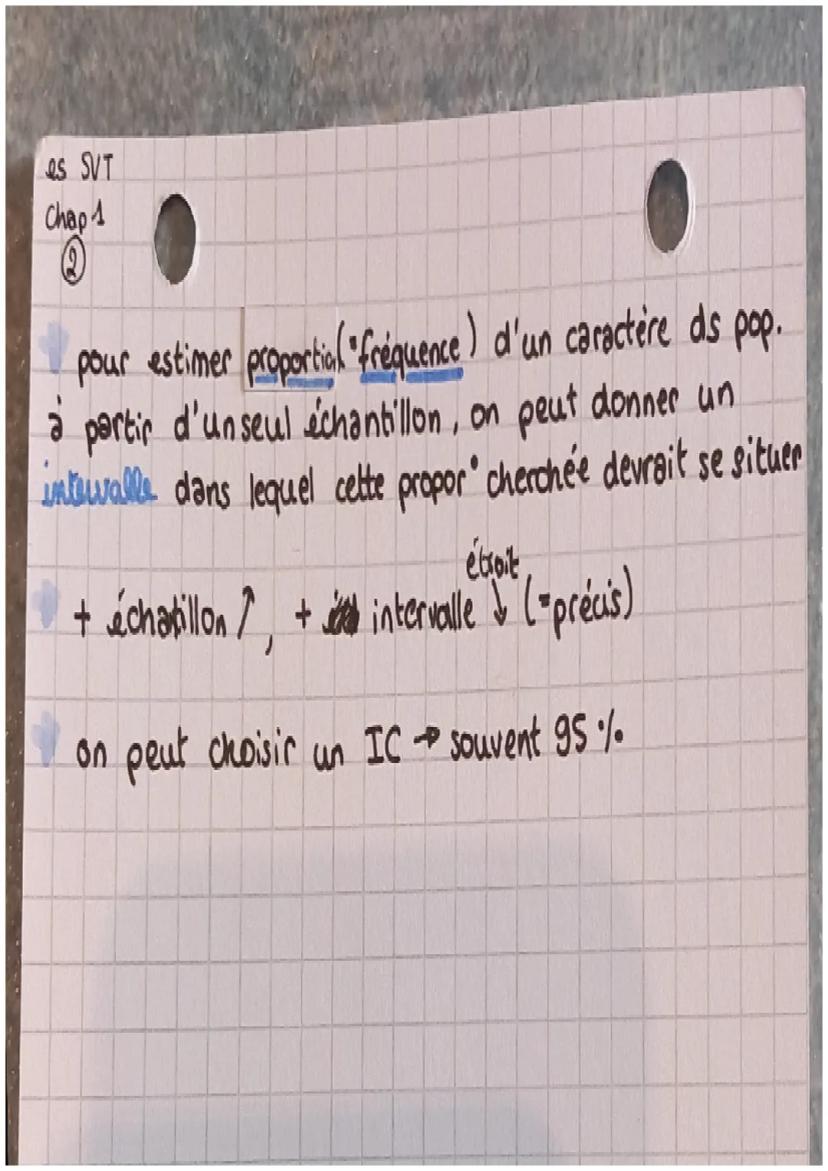 es SVT
Chap 1
②
pour estimer proportio (=fréquence) d'un caractère ds pop.
à partir d'un seul échantillon, on peut donner un
intervalle dans lequel cette propor° cherchée devrait se situer
étroit
+ échatillon ↑, + intervalle ↓ (=précis)
on peut choisir un IC → souvent 95 %